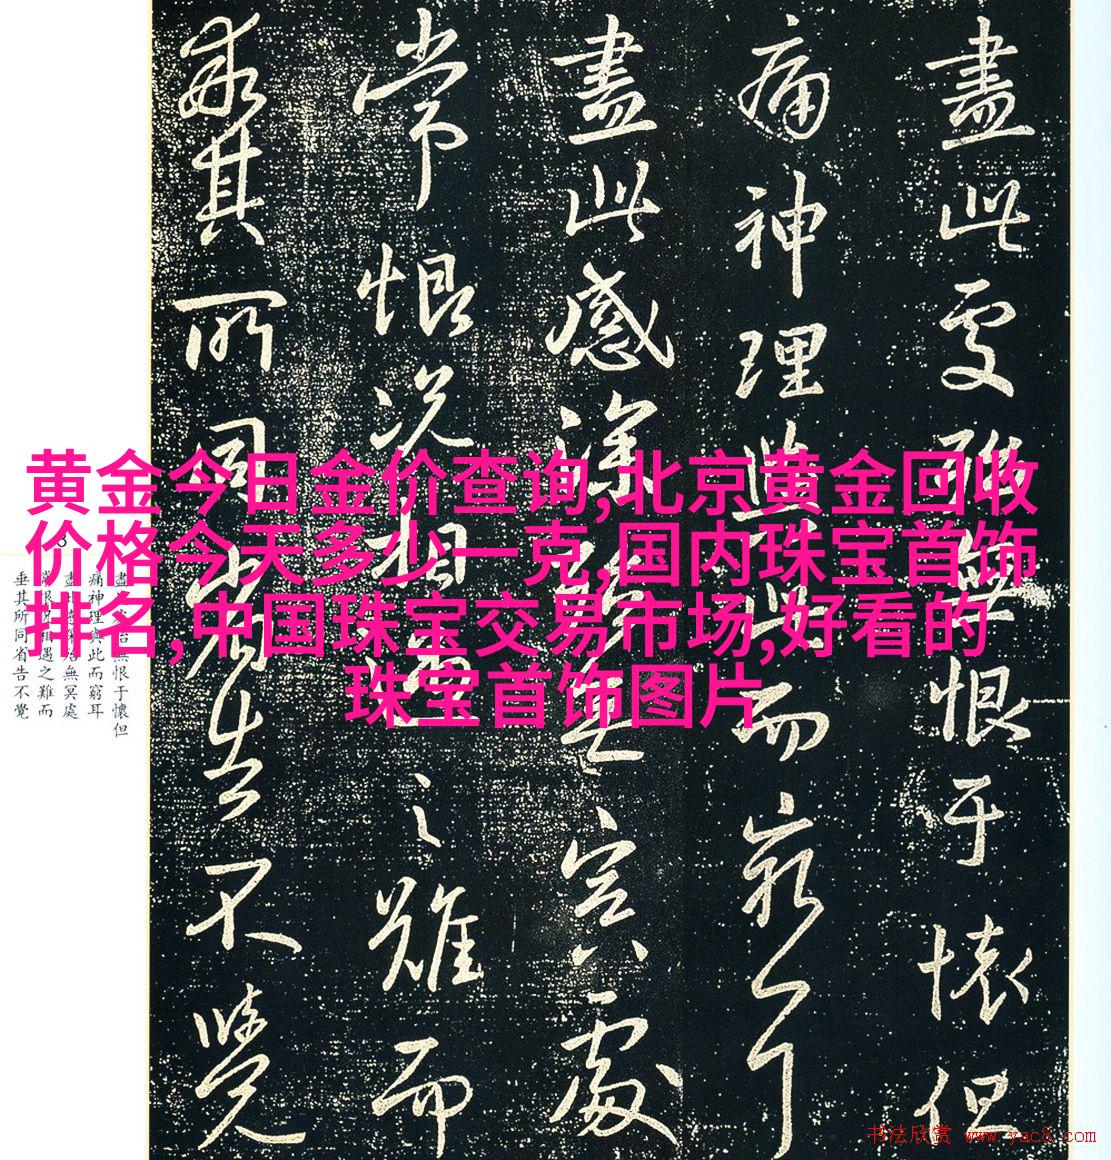 黄金今日金价查询,北京黄金回收
价格今天多少一克,国内珠宝首饰
排名,中国珠宝交易市场,好看的
珠宝首饰图片
盡此處無恨于懷但
痛神理與此而窮耳
盡此感深無冥處
常恨況相遇之難而
垂其所同省告不覺
盡無恨于懷但
痛神理與此而窮耳
盡無冥處
常恨況相遇之難而
垂其所同省告不覺
书法欣赏 www.yac8.com